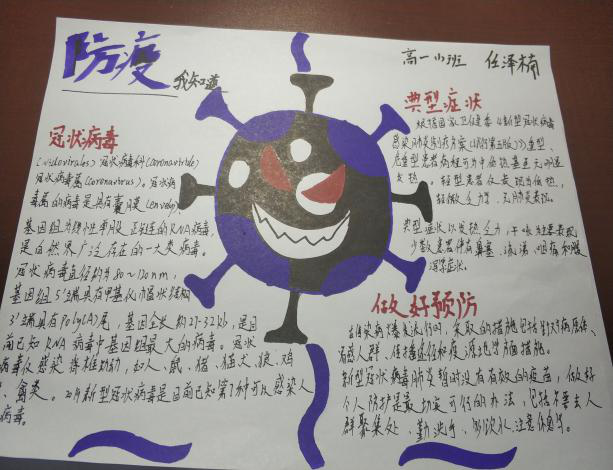 防疫
我知道
高一小班 任泽楠
冠状病毒
(Nidovirales)冠状病毒科(Coronaviridae)
冠状病毒属(Coronavirus)。冠状病
毒属的病毒是具有囊膜(envelope)、
基因组为线性单股正链的RNA病毒,
是自然界广泛存在的一大类病毒。
冠状病毒直径约为80～120nm,
基因组5'端具有甲基化的帽状结构
3'端具有Poly(A)尾,基因全长约27-32kb,是目
前已知RNA病毒中基因组最大的病毒。冠状
病毒仅感染脊椎动物,如人、鼠、猪、猫、犬、狼、鸡
、禽类。2019新型冠状病毒是目前已知第7种可以感染人
病毒。
典型症状
根据国家卫健委《新型冠状病毒
感染肺炎诊疗方案(试行第五版)》重型、
危重型患者病程可为中低热甚至无明显
发热。轻型患者仅表现为低热,
轻微乏力等,无肺炎表现。
典型症状以发热、乏力,干咳为主要表现
少数患者伴有鼻塞、流涕、咽痛和腹
泻等症状。
做好预防
在传染病爆发流行时,采取的措施包括针对病原体、
易感人群、传播途径和疫源地等方面措施。
新型冠状病毒肺炎暂时没有有效的疫苗,做好
个人防护是最切实可行的办法,包括不要去人
群聚集处、勤洗手、多饮水、注意休息等。